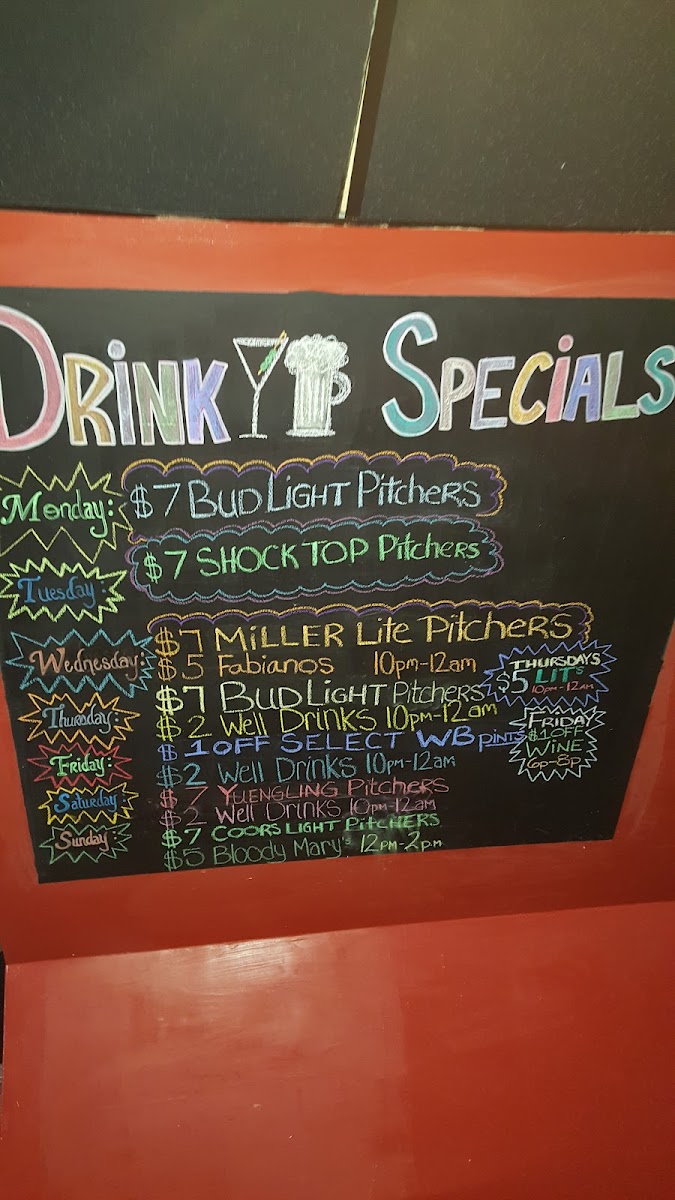 DRiNK SPECiALS
Monday: $7 BUD LIGHT PitchERS
Tuesday: $7 SHOCK TOP PitcheRS
Wednesday: $7 MiLLER Lite PitcHERS
$5 Fabianos 10pm-12am
Thursday: $7 BUD LIGHT PitcHERS
$2 Well Drinks 10pm-12am
THURSDAYS
$5 LIT's
10pm-12am
Friday: $1 OFF SELECT WB PiNTS
$2 Well Drinks 10pm-12am
FRiDAY
$1 OFF
WiNE
6p-8p
Saturday: $7 YUENGLING PitcHERS
$2 Well Drinks 10pm-12am
Sunday: $7 COORS LIGHT PitCHERS
$5 Bloody Mary's 12pm-2pm